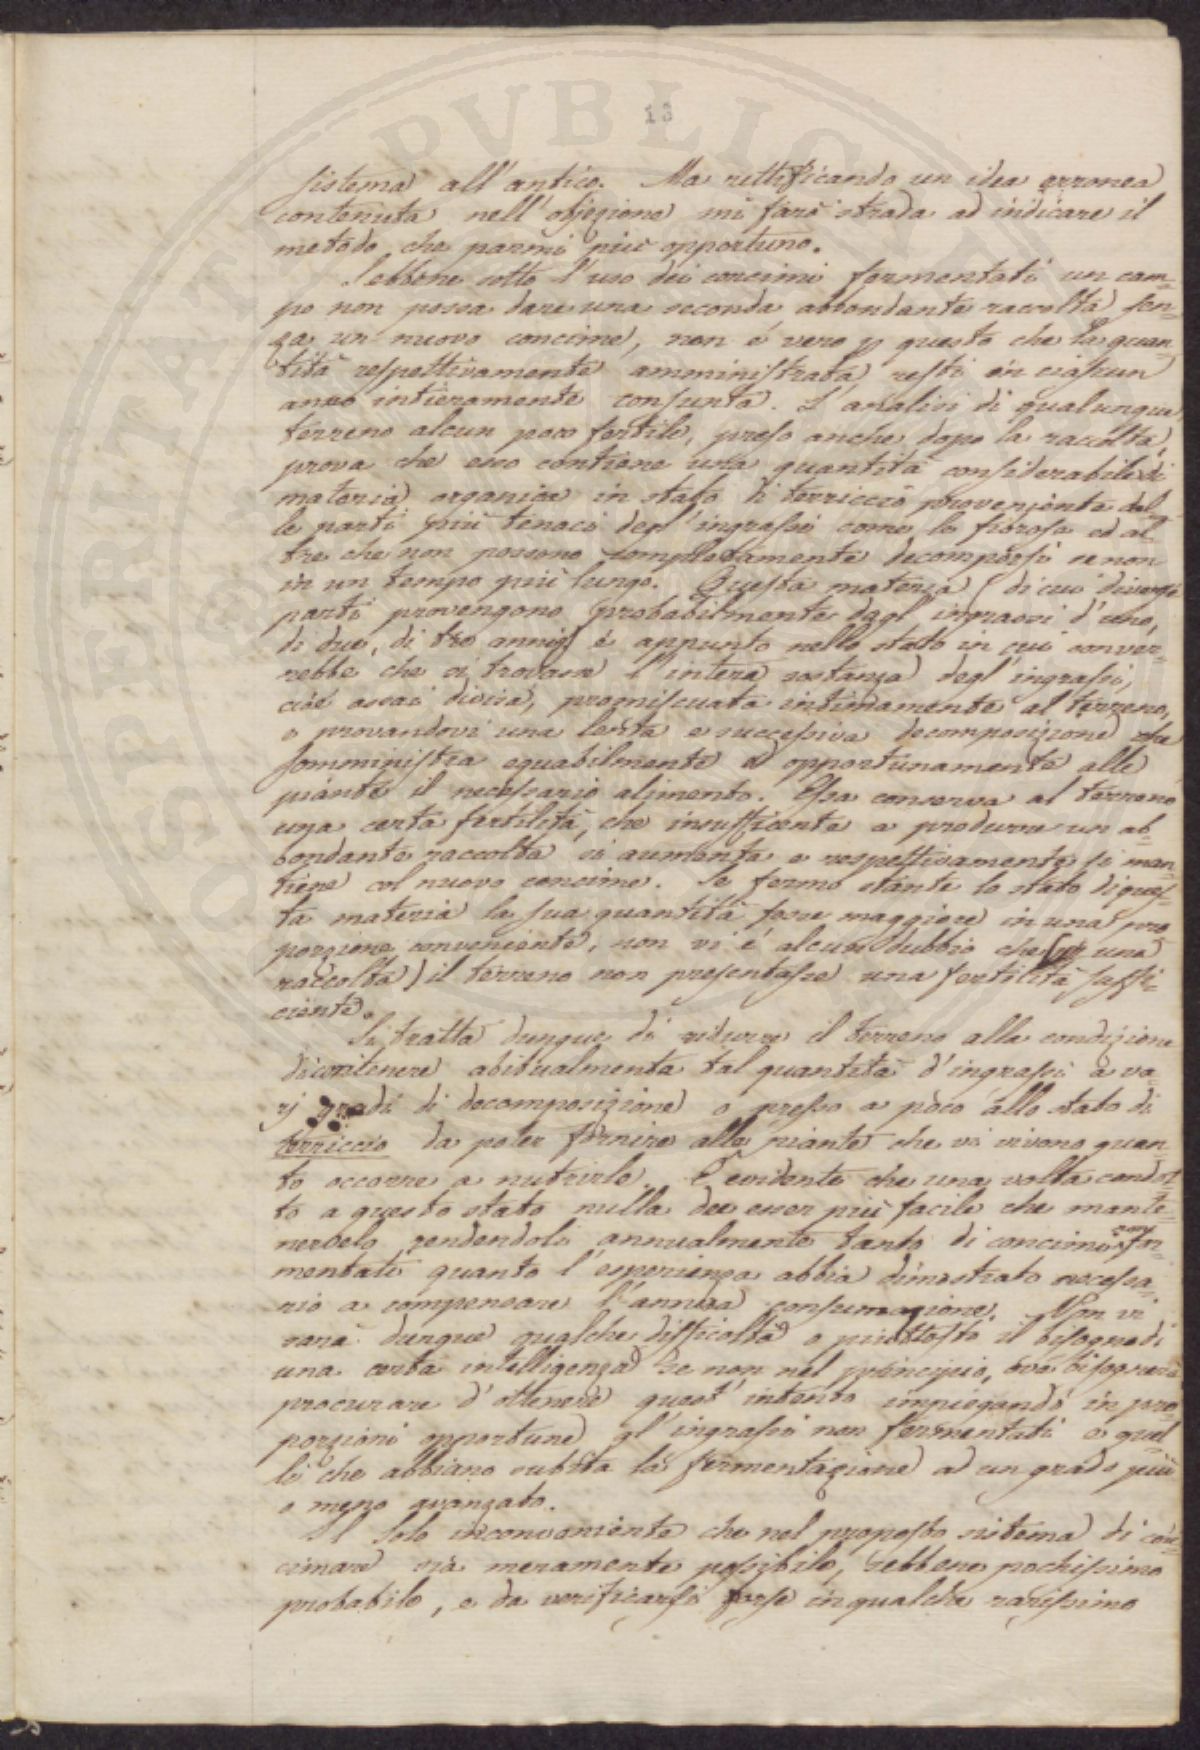 13
sistema all'antico. Ma rettificando un idea erronea
contenuta nell'objezione mi farò strada ad indicare il
metodo che parmi più opportuno.
Sebbene sotto l'uso dei concimi fermentati un cam=
po non possa dare una seconda abbondante raccolta sen=
za un nuovo concime, non è vero p questo che la quan=
tità respettivamente amministrata resti in ciascun
anno intieramente consunta. L'analisi di qualunque
terreno alcun poco fertile, preso anche dopo la raccolta,
prova che esso contiene una quantità considerabile di
materia organica in stato di terriccio proveniente dal=
le parti più tenaci degl'ingrassi come la fibrosa ed al=
tre che non possono completamente decomporsi se non
in un tempo più lungo. Questa materia (di cui diverse
parti provengono probabilmente dagl'ingrassi d'uno,
di due, di tre anni) è appunto nello stato in cui conver=
rebbe che si trovasse l'intera sostanza degl'ingrassi,
cioè assai divisa, promiscuata intimamente al terreno,
e provandovi una lenta e successiva decomposizione che
somministra equabilmente e opportunamente alle
piante il necessario alimento. Essa conserva al terreno
una certa fertilità, che insufficente a produrre un ab=
bondante raccolta si aumenta e respettivamente si man=
tiene col nuovo concime. Se fermo stante lo stato di ques=
ta materia la sua quantità fosse maggiore in una pro
porzione conveniente, non vi è alcun dubbio che una
raccolta) il terreno non presentasse una fertilità suffi=
ciente.
Si tratta dunque di ridurre il terreno alla condizione
di contenere abitualmente tal quantità d'ingrassi a va=
rj gradi di decomposizione o presso a poco allo stato di
terriccio da poter fornire alle piante che vi vivono quan=
to occorre a nutrirle. È evidente che una volta condot
to a questo stato nulla dee esser più facile che mante=
nervelo rendendoli annualmente tanto di concimi fer=
mentati quanto l'esperienza abbia dimostrato necessa=
rio a compensare l'annua consumazione. Non vi
sarà dunque qualche difficoltà o piuttosto il bisogno di
una certa intelligenza se non nel principio, ove bisognerà
procurare d'ottenere quest'intento impiegando in pro=
porzioni opportune gl'ingrassi non fermentati e quel
li che abbiano subìta la fermentazione ad un grado più
o meno avanzato.
Il solo inconveniente che nel proposto sistema di con=
cimare sia meramente possibile, sebbene pochissimo
probabile, e da verificarsi forse in qualche rarissimo